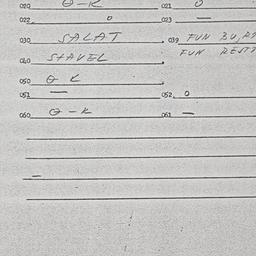 020 O-K 021 O
022 O 023 —
030 SALAT 039 FUN
FUN
040 STAVEL
050 O K
051 — 052 O
060 O-K 061 —